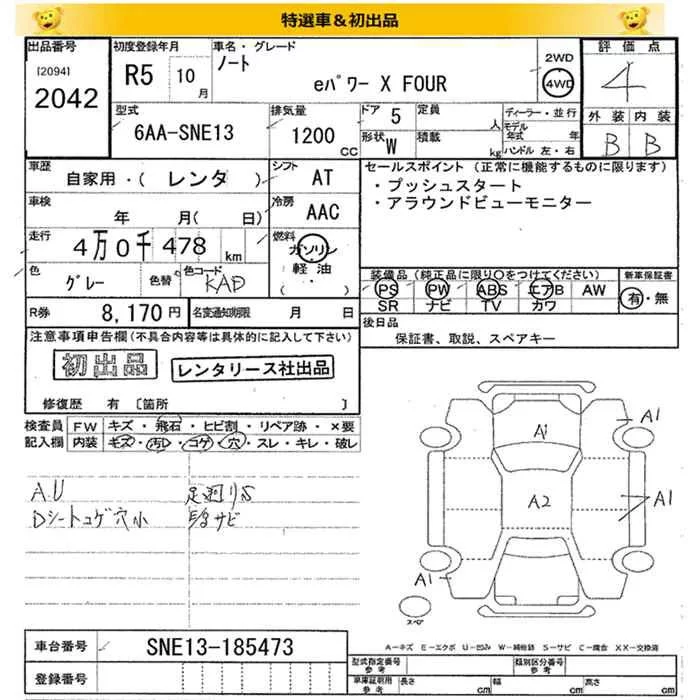 特選車＆初出品
出品番号
[2094]
2042
初度登録年月
R5 10月
車名・グレード
ノート
eパワー X FOUR
2WD
4WD
評価点
4
外装 内装
B B
型式
6AA-SNE13
排気量
1200 CC
ドア 5
形状 W
定員 人
積載 kg
ディーラー・並行
モデル年式 年
ハンドル 左・右
車歴
自家用・( レンタ )
シフト AT
車検
年 月( 日)
冷房 AAC
走行
4万0千478 km
燃料
ガソリン
軽油・
( )
色
グレー
色替
色コード
KAD
R券 8,170円
名変通知期限 月 日
セールスポイント（正常に機能するものに限ります）
・プッシュスタート
・アラウンドビューモニター
装備品（純正品に限り○をつけてください）
PS PW ABS エアB AW
SR ナビ TV カワ
新車保証書
有・無
後日品
保証書、取説、スペアキー
注意事項申告欄（不具合内容等は具体的に記入して下さい）
初出品
レンタリース社出品
修復歴 有 〔箇所 〕
検査員記入欄
FW キズ・飛石・ヒビ割・リペア跡・×要
内装 キズ・汚レ・コゲ・穴・スレ・キレ・破レ
A.U
Dシートコゲ穴小
足廻りS
サビ
A1
A1
A2
A1
A1
スペア
A－キズ E－エクボ U－凹み W－補修跡 S－サビ C－腐食 XX－交換済
車台番号 SNE13-185473
登録番号
型式指定番号
参考
類別区分番号
参考
車庫証明用
参考
長さ cm
幅 cm
高さ cm